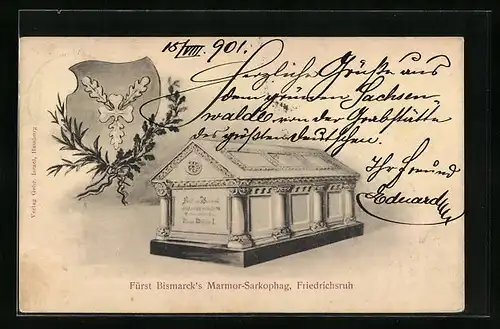 15/VIII. 901.
Herzliche Grüße aus
dem grünen Sachsen
walde von der Grabstätte
des größten Deutschen.
Ihr Freund
Eduard
Verlag Gebr. Isra&l, Hamburg
Fürst Bismarck's Marmor-Sarkophag, Friedrichsruh